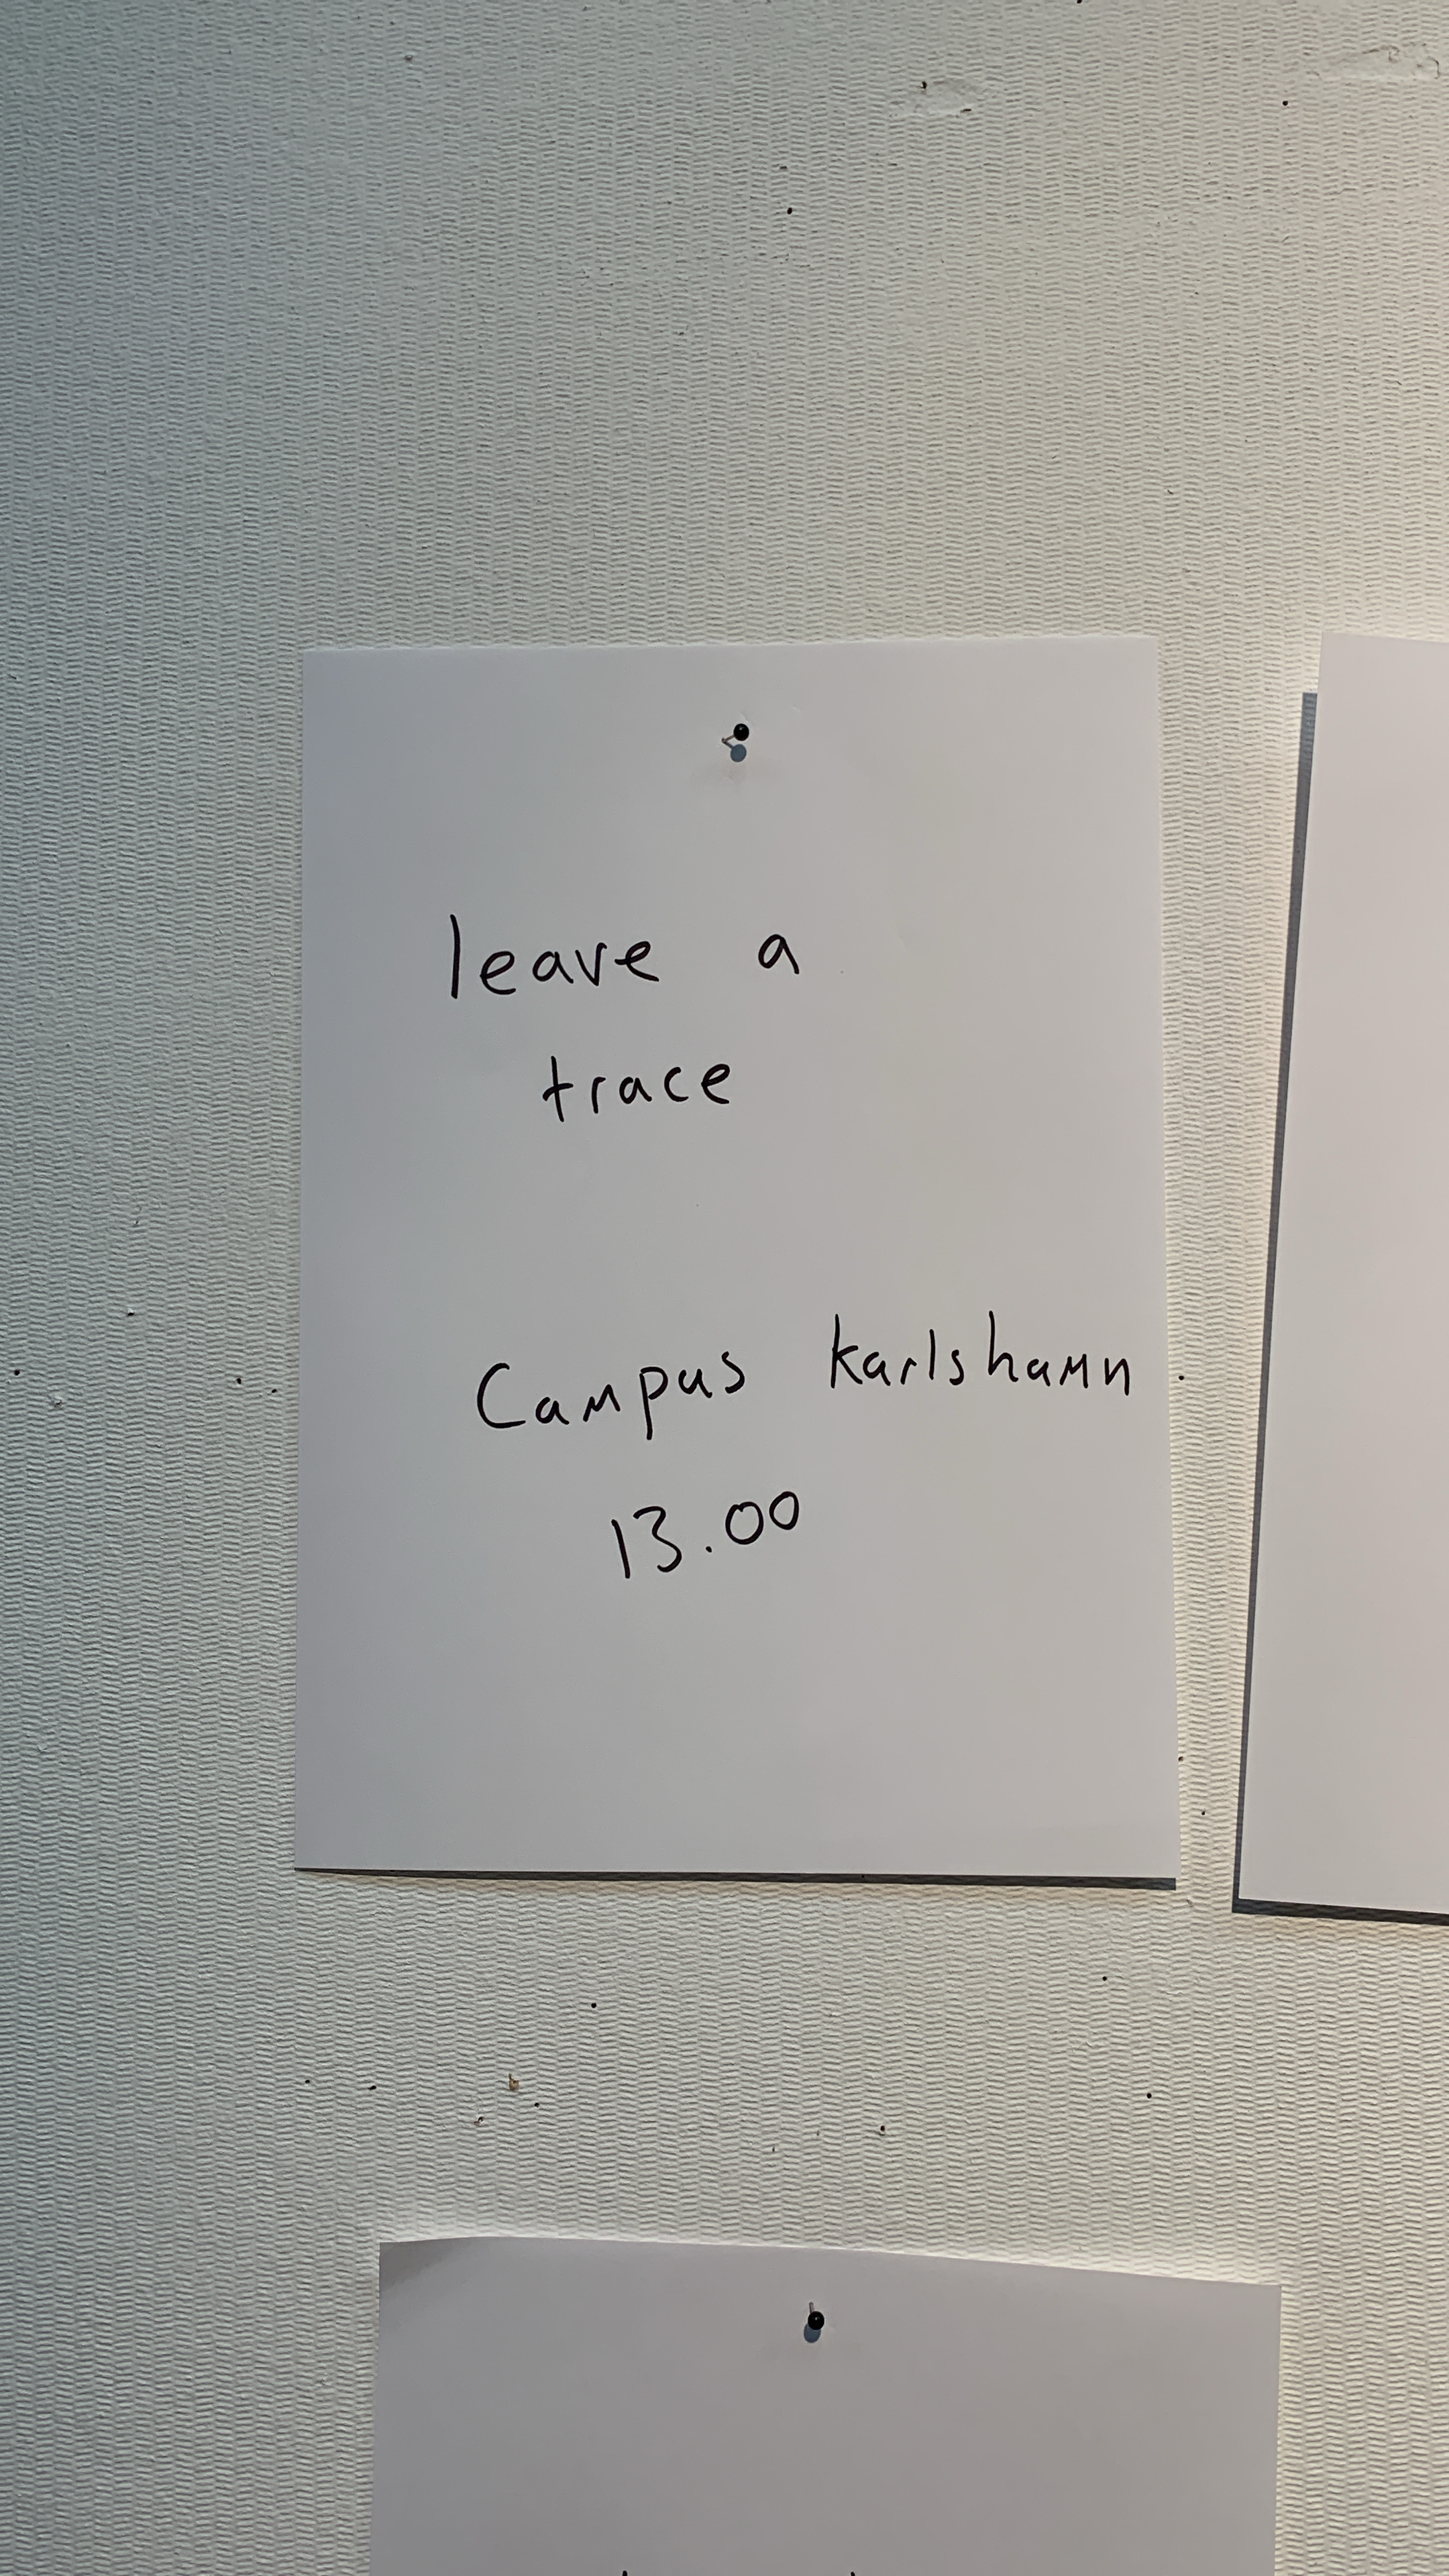 leave a
trace
Campus karlshamn
13.00